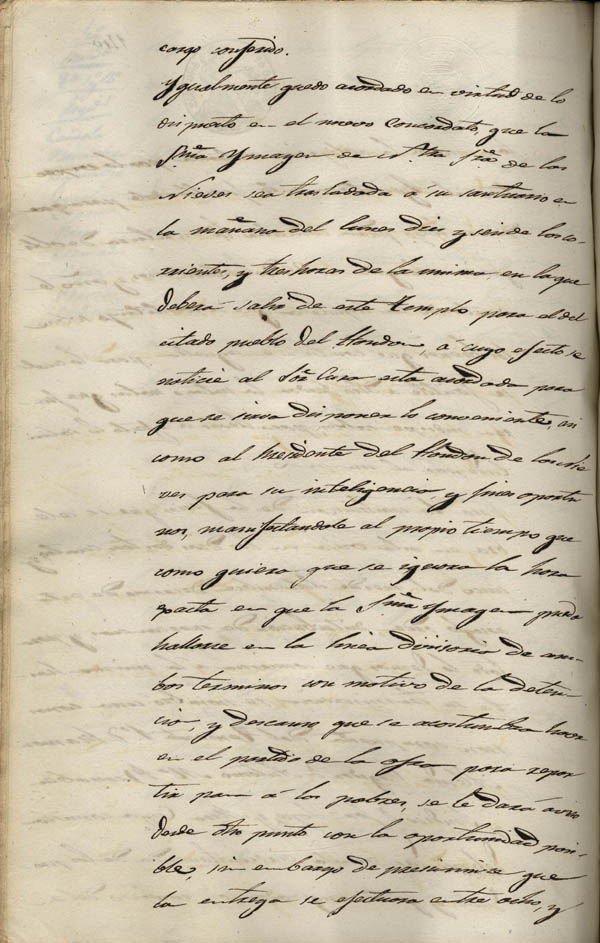 cargo conferido.
Ygualmente quedo acordado en virtud de lo
dispuesto en el nuevo Concordato, que la
Sma Ymagen de Ntra Sra de las
Nieves sea trasladada á su santuario en
la mañana del lunes diez y seis de los co-
rrientes, y tres horas de la misma, en la que
deberá salir de este templo para el
citado pueblo del Hondon, á cuyo efecto se
noticie al Sor Cura esta acordada para
que se sirva disponer lo conveniente, asi
como al Presidente del Hondon de las Nie
ves para su inteligencia y fines oportu
nos, manifestandole al propio tiempo que
como quiera que se ignora la hora
exacta en que la Sma Ymagen pueda
hallarse en la linea divisoria de am-
bos terminos con motivo de la deten-
cion, y descanso que se acostumbra hacer
en el partido de la ofra para repar
tir pan á los pobres, se le dará aviso
desde dho punto con la oportunidad posi-
ble, sin embargo de presumirse que
la entrega se efectuara entre ocho, y